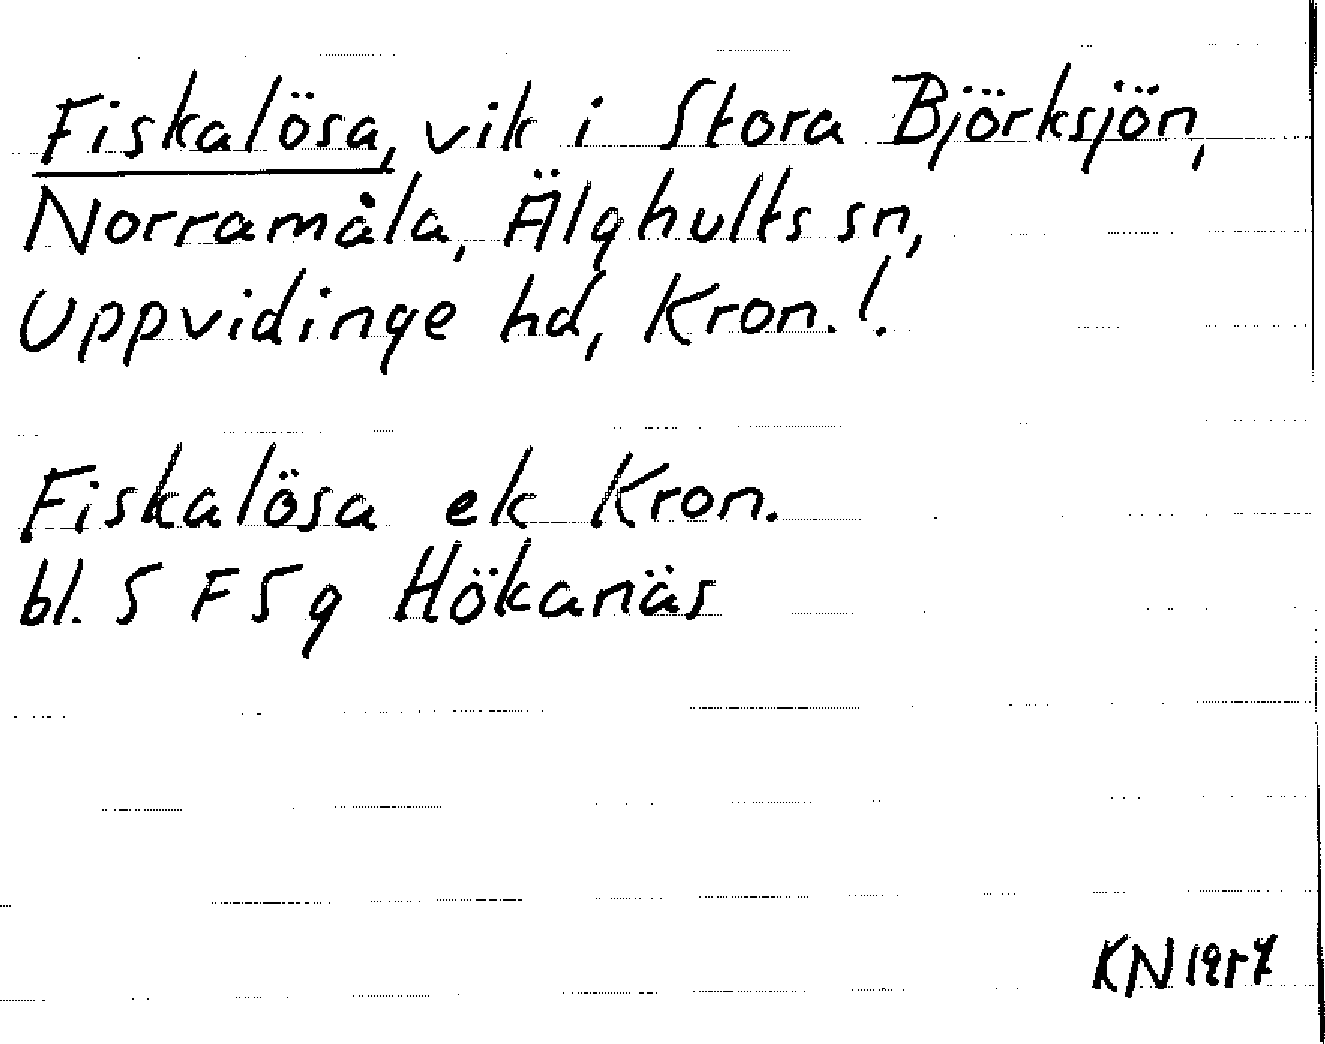 Fiskalösa, vik i Stora Björksjön,
Norramåla, Älghults sn,
Uppvidinge hd, Kron. l.
Fiskalösa ek Kron.
bl. 5 F 5 g Hökanäs
KN 1957